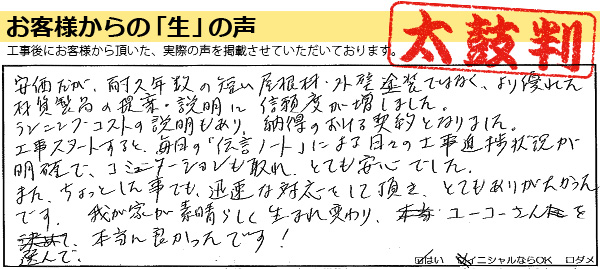 お客様からの「生」の声
工事後にお客様から頂いた、実際の声を掲載させていただいております。
太鼓判
安価だが、耐久年数の短い屋根材・外壁塗装ではなく、より優れた
材質製品の提案・説明に信頼度が増しました。
ランニングコストの説明もあり、納得のおける契約となりました。
工事スタートすると、毎日の「伝言ノート」による日々の工事進捗状況が
明確で、コミュニケーションも取れ、とても安心でした。
また、ちょっとした事でも、迅速な対応をして頂き、とてもありがたかった
です。我が家が素晴らしく生まれ変わり、ユーコーさんを
選んで、本当に良かったです!
はい イニシャルならOK ダメ